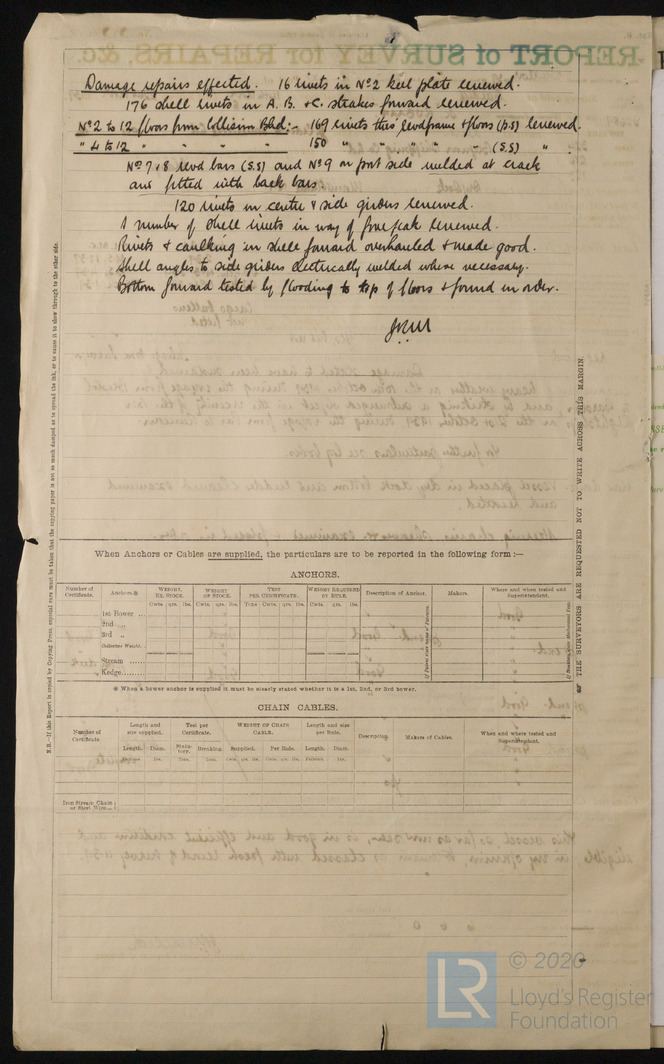 Damage repairs effected. 16 rivets in No 2 keel plate renewed.
176 shell rivets in A. B. & C. strakes forward renewed.
No 2 to 12 floors from Collision Bhd:- 169 rivets thro' revd frame & floors (p.s) renewed.
" 4 to 12 " " " " 150 " " " " " (S.S) "
No 7 & 8 revd bars (S.S) and No 9 on port side welded at crack
and fitted with back bars.
120 rivets in centre & side girders renewed.
A number of shell rivets in way of fore peak renewed.
Rivets & caulking in shell forward overhauled & made good.
Shell angles to side girders electrically welded where necessary.
Bottom forward tested by flooding to top of floors & found in order.
When Anchors or Cables are supplied, the particulars are to be reported in the following form :—
ANCHORS.
Number of Certificate. Anchors.* WEIGHT, EX. STOCK. WEIGHT OF STOCK. TEST PER CERTIFICATE. WEIGHT REQUIRED BY RULE. Description of Anchor. Makers. Where and when tested and Superintendent.
Cwts. qrs. lbs. Cwts. qrs. lbs. Tons Cwts. qrs. lbs. Cwts. qrs. lbs.
1st Bower ...
2nd „
3rd „
Collective Weight.
Stream ......
Kedge........
* When a bower anchor is supplied it must be clearly stated whether it is a 1st, 2nd, or 3rd bower.
CHAIN CABLES.
Number of Certificate. Length and size supplied. Test per Certificate. WEIGHT OF CHAIN CABLE. Length and size per Rule. Description. Makers of Cables. When and where tested and Superintendent.
Length. Diam. Statutory. Breaking. Supplied. Per Rule. Length. Diam.
Iron Stream Chain or Steel Wire
N.B.—If this Report is copied by Copying Press, especial care must be taken that the copying paper is not so much damped as to spread the ink, or to cause it to show through to the other side.
THE SURVEYORS ARE REQUESTED NOT TO WRITE ACROSS THIS MARGIN.
LR
© 2020
Lloyd's Register
Foundation